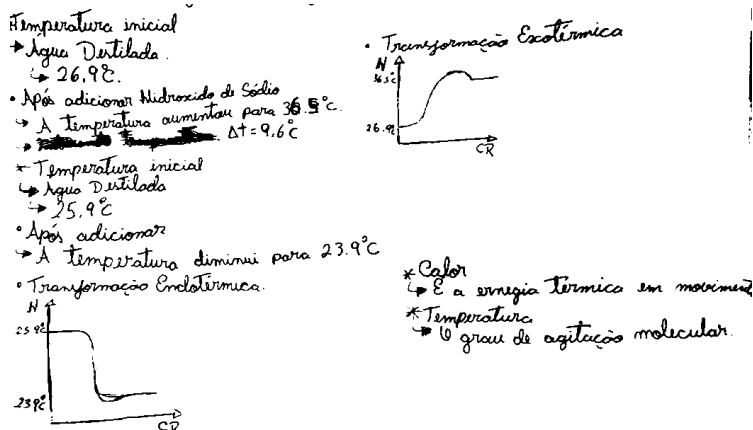 Temperatura inicial
→ Água Destilada.
↳ 26,9°C.
• Após adicionar Hidroxido de Sódio
→ A temperatura aumentau para 36.5°C.
→ Δt = 9,6°C
* Temperatura inicial
↳ Água Destilada
↳ 25,9°C
• Após adicionar
→ A temperatura diminui para 23.9°C
• Transformação Endotérmica.
H
25 9°C
23 9°C
CR
• Transformação Exotérmica
H
36,5°C
26.9°C
CR
* Calor
↳ É a ernegia térmica em moviment
* Temperatura
↳ O grau de agitação molecular.